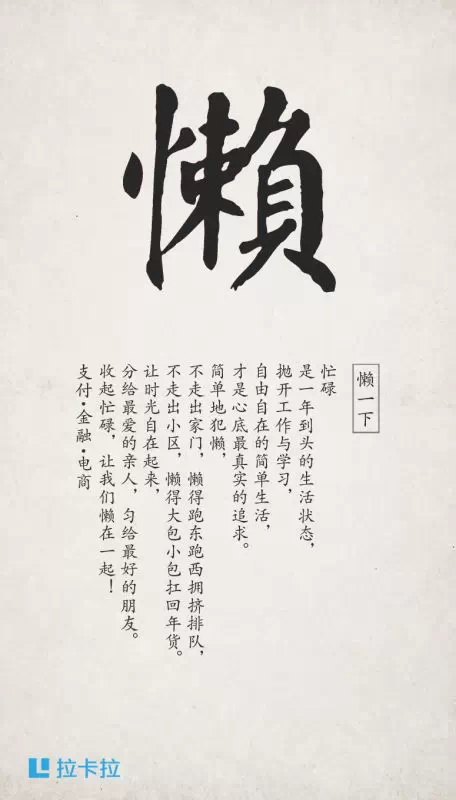 懒
懒一下
忙碌
是一年到头的生活状态，
抛开工作与学习，
自由自在的简单生活，
才是心底最真实的追求。
简单地犯懒，
不走出家门，懒得跑东跑西拥挤排队，
不走出小区，懒得大包小包扛回年货。
让时光自在起来，
分给最爱的亲人，匀给最好的朋友。
收起忙碌，让我们懒在一起！
支付·金融·电商
拉卡拉